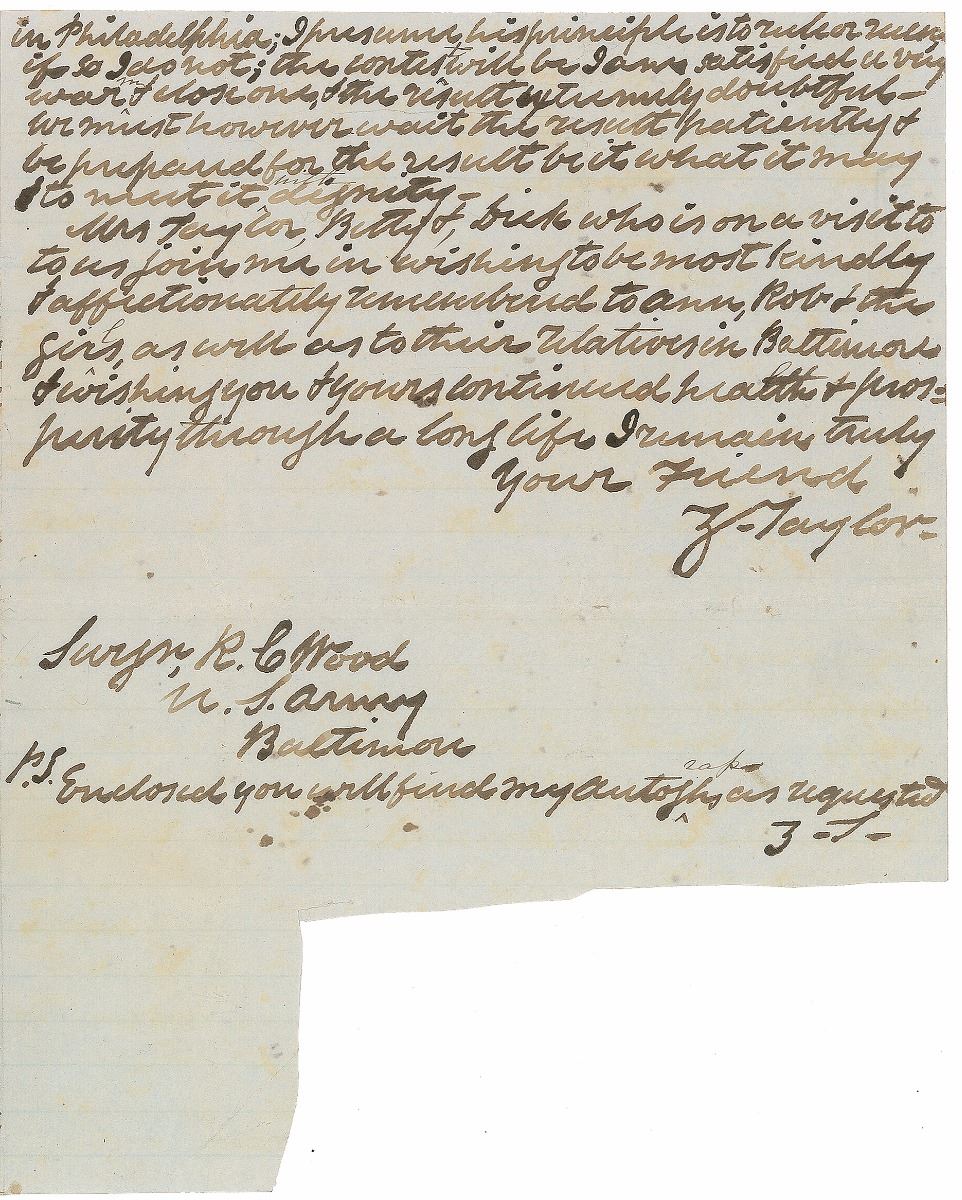 in Philadelphia; I presume, his principle is to rule or ruin,
if so I do not; the contest will be I am satisfied a very
warm & close one, & the result extremely doubtful —
we must however wait the result patiently &
be prepared for the result be it what it may
& to meet it with dignity —
Mrs Taylor, Betty &, Dick who is on a visit to
to us join me in wishing to be most kindly
& affectionately remembered to Ann, Rob & the
girls, as well as to their relatives in Baltimore
& wishing you & yours continued health & pros=
perity through a long life I remain, truly
Your Friend
Z. Taylor —
Surgn, R. C Wood
U. S. Army
Baltimore
P.S. Enclosed you will find my Autographs, as requested
Z - T -